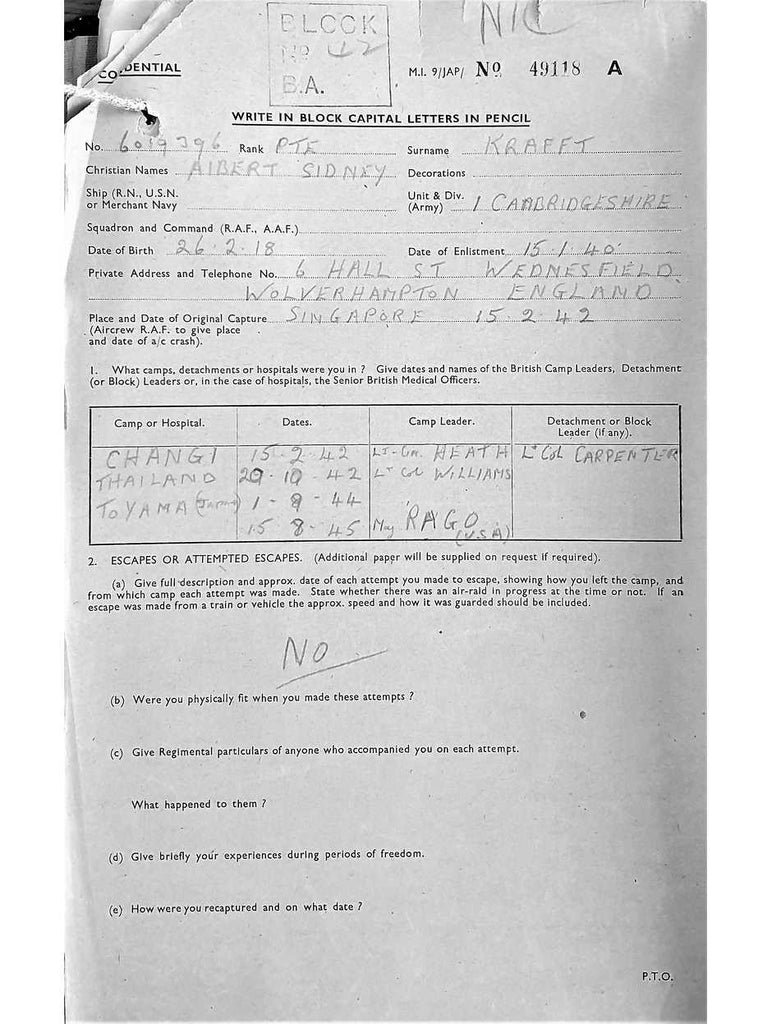 BLOCK
No 42
B.A.
NIL
CO DENTIAL
M.I. 9/JAP/ No 49118 A
WRITE IN BLOCK CAPITAL LETTERS IN PENCIL
No. 6019396 Rank PTE Surname KRAFFT
Christian Names AlBERT SIDNEY Decorations
Ship (R.N., U.S.N. or Merchant Navy
Unit & Div. (Army) 1 CAMBRIDGESHIRE
Squadron and Command (R.A.F., A.A.F.)
Date of Birth 26.2.18 Date of Enlistment 15.1.40
Private Address and Telephone No. 6 HALL ST WEDNESFIELD
WOLVERHAMPTON ENGLAND
Place and Date of Original Capture SINGAPORE 15.2.42
(Aircrew R.A.F. to give place
and date of a/c crash).
1. What camps, detachments or hospitals were you in ? Give dates and names of the British Camp Leaders, Detachment
(or Block) Leaders or, in the case of hospitals, the Senior British Medical Officers.
Camp or Hospital. Dates. Camp Leader. Detachment or Block Leader (if any).
CHANGI 15-2-42 Lt-Col. HEATH Lt Col CARPENTER
THAILAND 29-10-42 Lt Col WILLIAMS
TOYAMA (Japan) 1-9-44
15 8-45 Maj RAGO (USA)
2. ESCAPES OR ATTEMPTED ESCAPES. (Additional paper will be supplied on request if required).
(a) Give full description and approx. date of each attempt you made to escape, showing how you left the camp, and
from which camp each attempt was made. State whether there was an air-raid in progress at the time or not. If an
escape was made from a train or vehicle the approx. speed and how it was guarded should be included.
NO
(b) Were you physically fit when you made these attempts ?
(c) Give Regimental particulars of anyone who accompanied you on each attempt.
What happened to them ?
(d) Give briefly your experiences during periods of freedom.
(e) How were you recaptured and on what date ?
P.T.O.